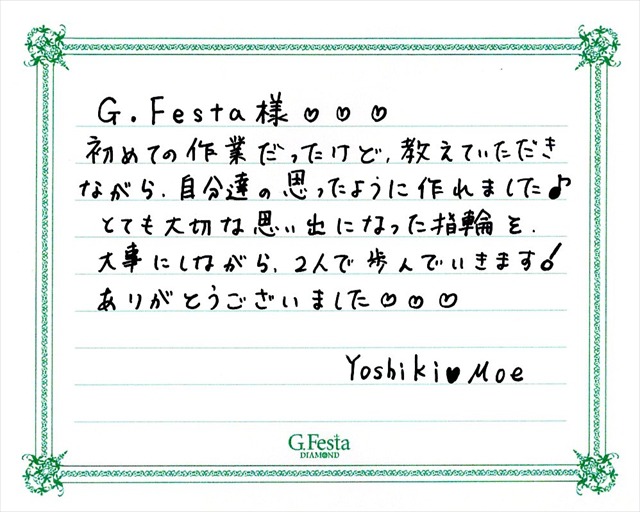 G.Festa様♡♡♡
初めての作業だったけど、教えていただき
ながら、自分達の思ったように作れました♪
とても大切な思い出になった指輪を、
大事にしながら、2人で歩んでいきます!
ありがとうございました♡♡♡
Yoshiki♥Moe
G.Festa
DIAMOND